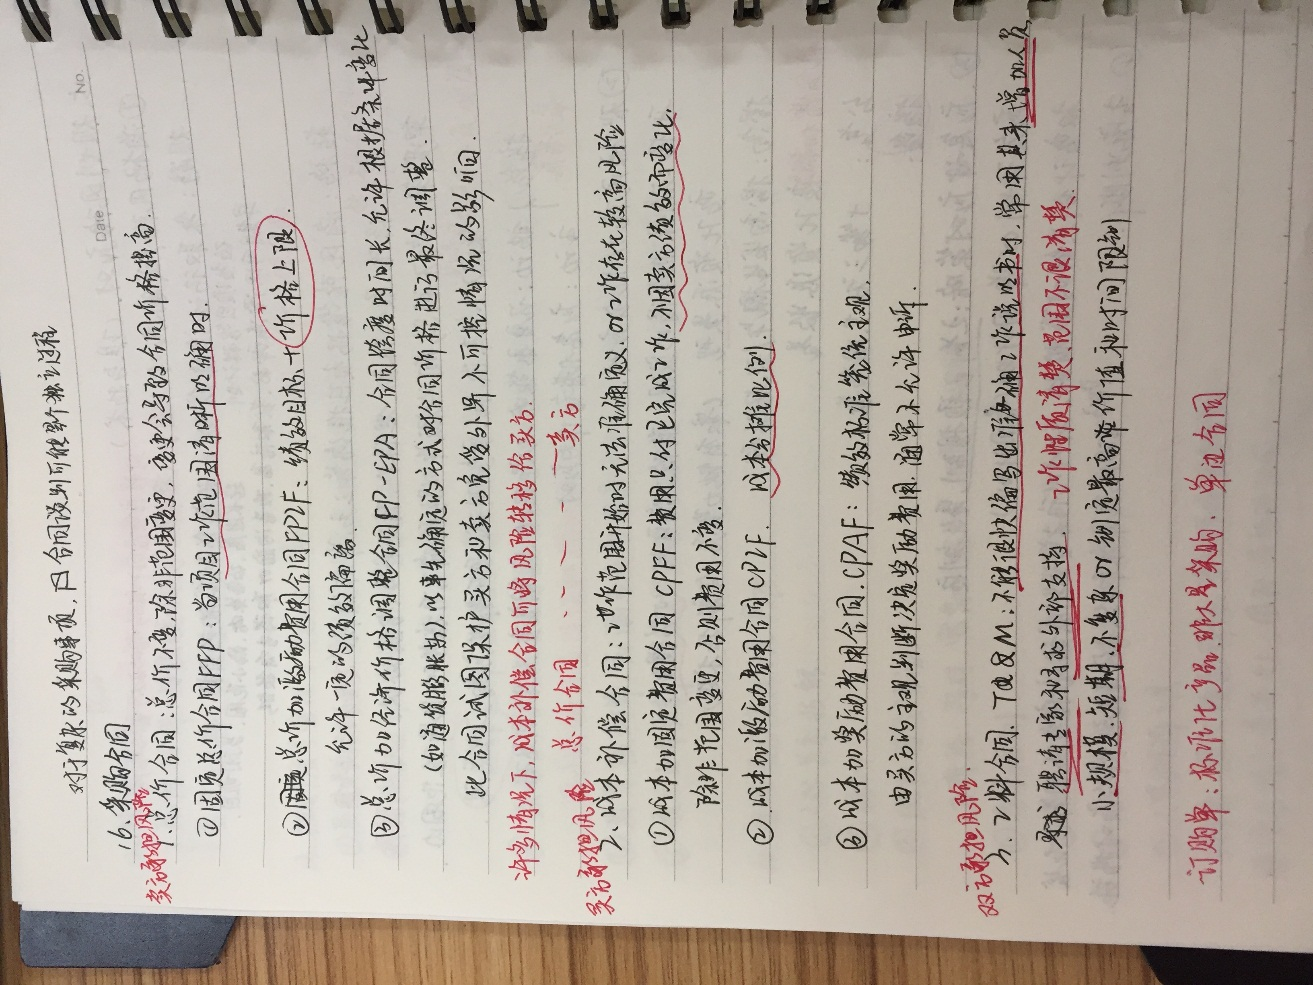 No.
Date
对于复杂的采购事项，凡合同谈判可能是个独立过程
16. 采购合同
卖方承担风险
1. 总价合同：总价不变，除非范围变更，变更会导致合同价格提高.
①固定总价合同FFP：当项目工作范围清晰明确时.
②总价加激励费用合同FPIF：绩效目标+价格上限.
允许一定的绩效偏离
③总价加经济价格调整合同FP-EPA：合同跨度时间长，允许根据条件变化
(如通货膨胀)，以事先确定的方式对合同价格进行最终调整.
此合同试图保护买方和卖方免受外界不可控情况的影响
许多情况下，成本补偿合同可将风险转移给买方.
总价合同 ‥ — - - — 卖方
买方承担风险
2. 成本补偿合同：工作范围开始时无法准确定义，or工作存在较高风险
①成本加固定费用合同 CPFF：费用只付已完成工作，不因卖方绩效而变化.
除非范围变更，否则费用不变.
②成本加激励费用合同CPIF. 成本分摊比例.
③成本加奖励费用合同. CPAF：绩效标准笼统主观.
由买方的主观判断决定奖励费用. 通常不允许申诉.
双方承担风险.
3. 工料合同. T&M：不能很快编写出准确工作说明书时，常用其来增加人员
聘请专家和寻求外部支持. 工作性质清楚 范围不很清楚.
小规模. 短期. 不复杂 or 规定最高总价值和时间限制
订购单：标准化产品，非大量采购. 单边合同